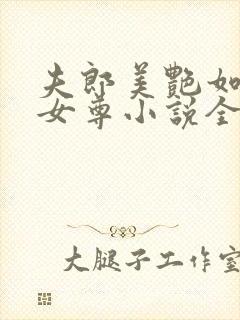 夫郎美艷如
女尊小說全
大腿子工作室